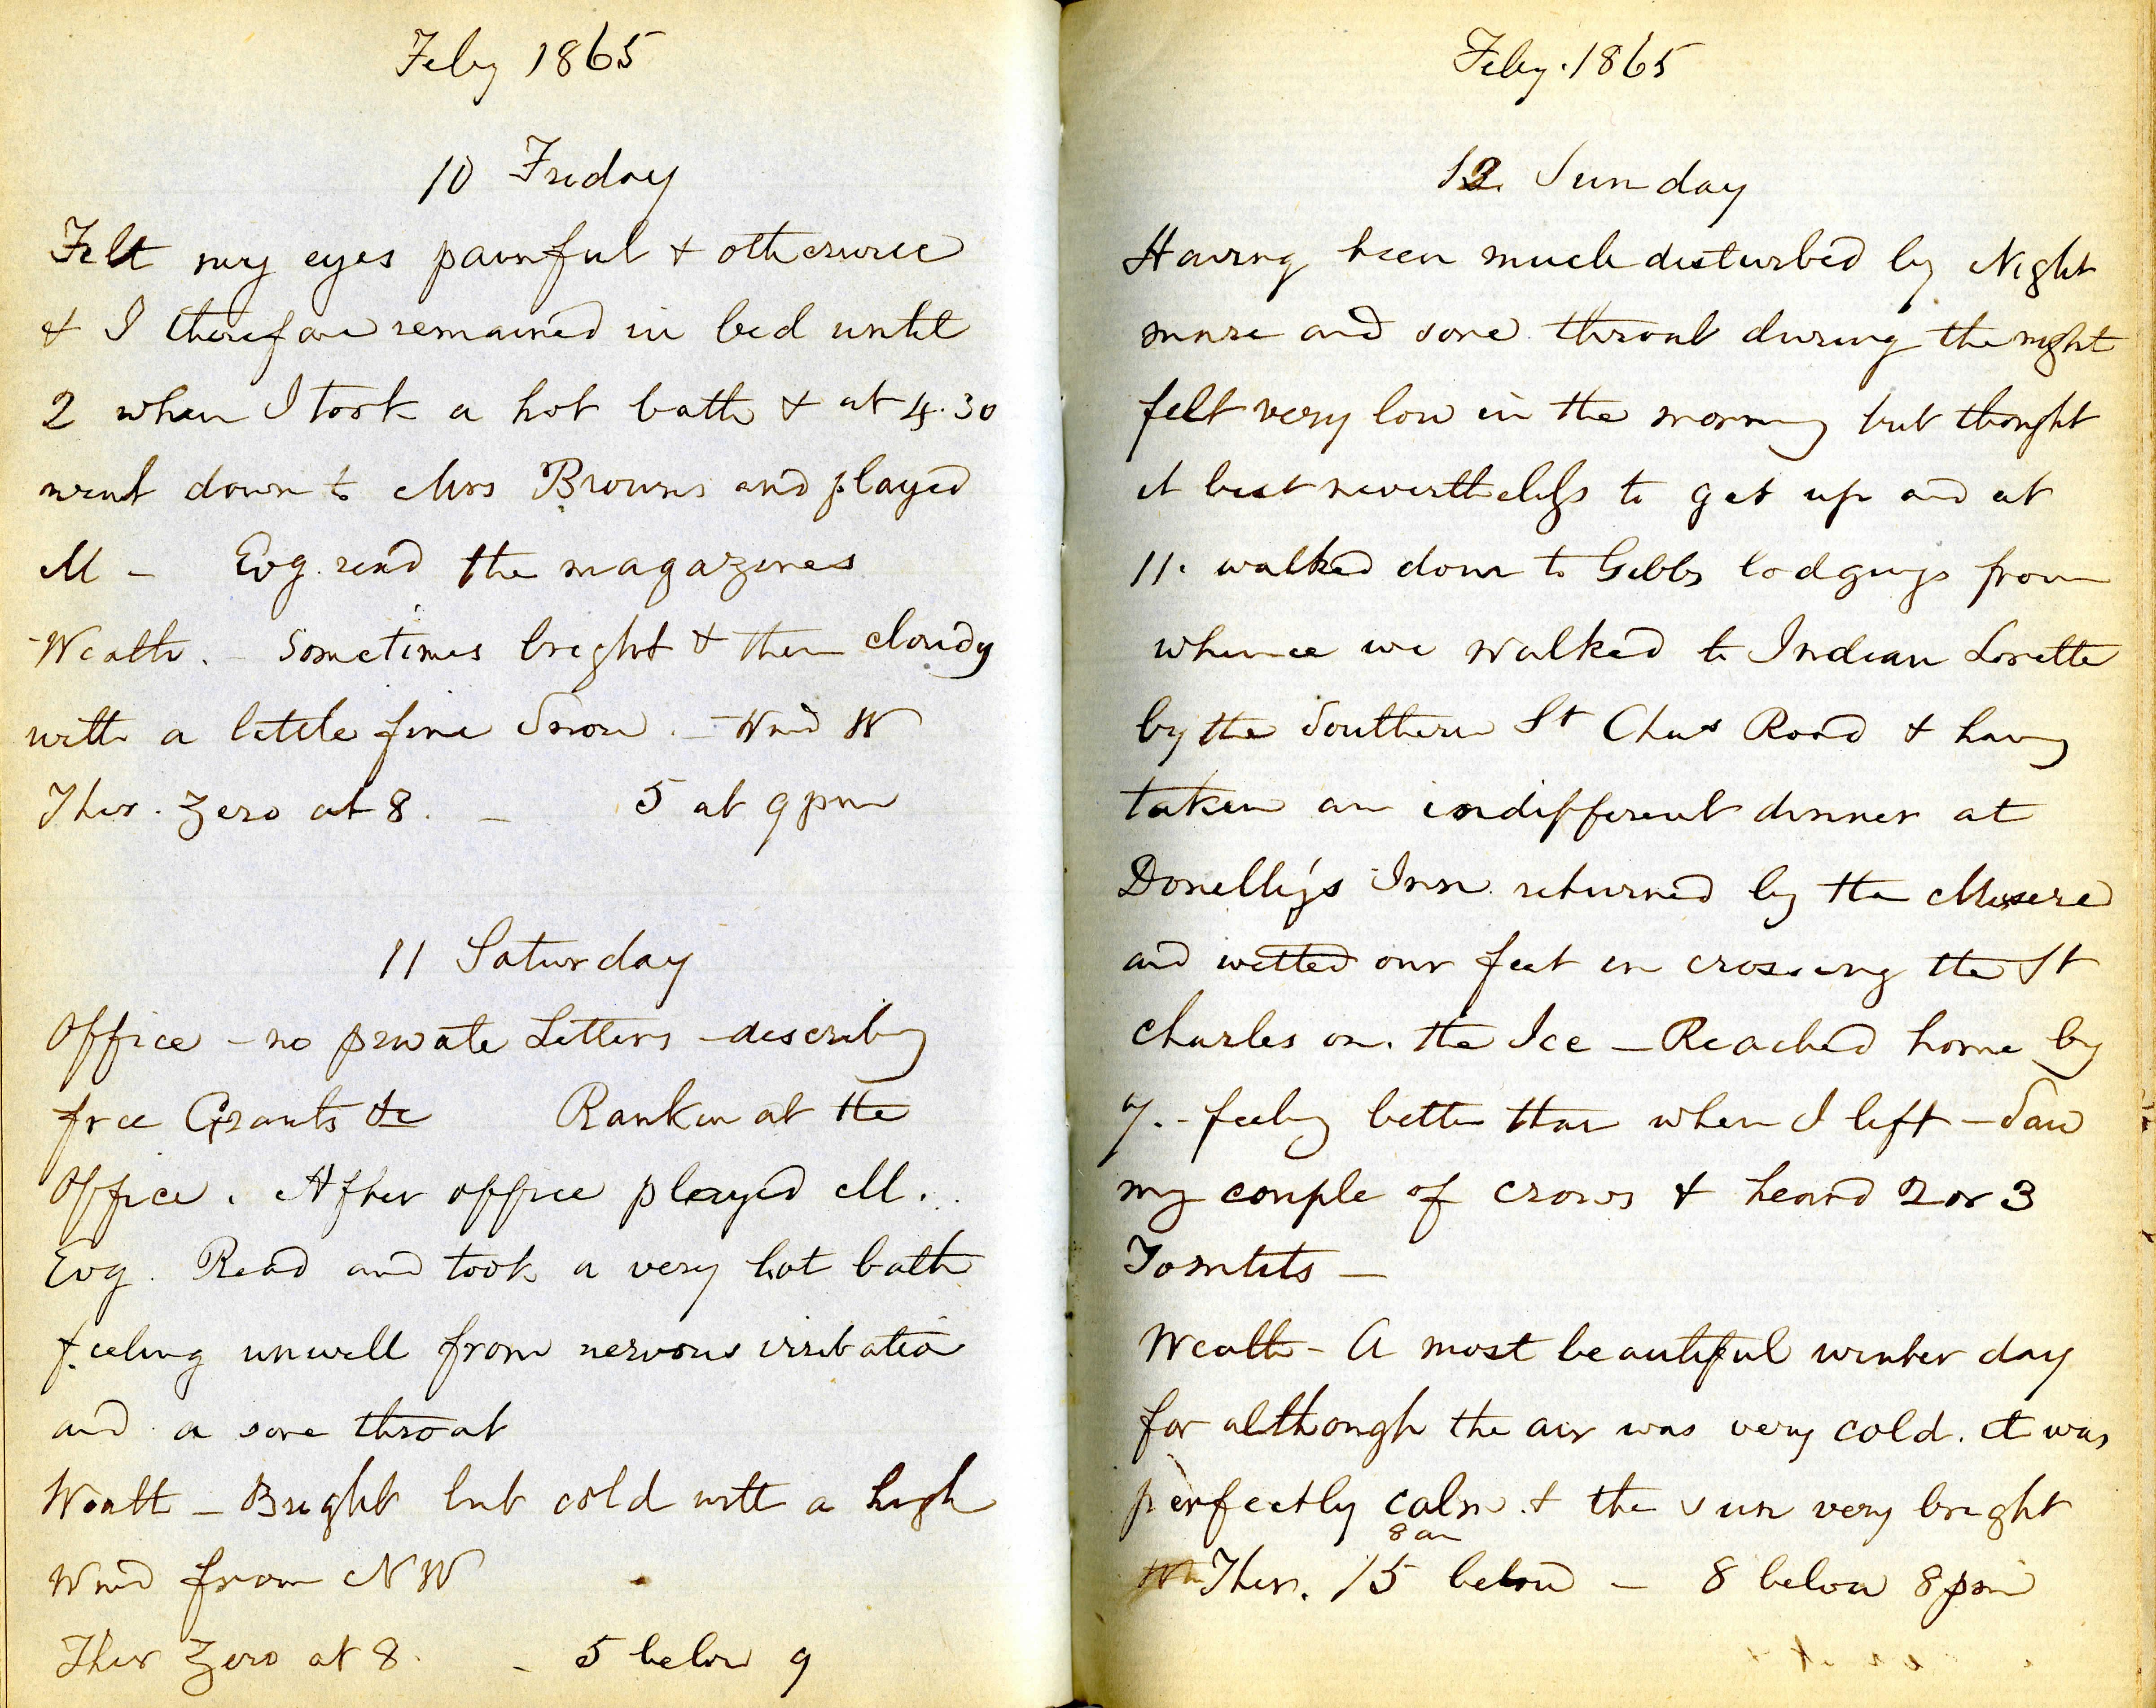 Feby 1865
10 Friday
Felt my eyes painful & otherwise
& I therefore remained in bed until
2 when I took a hot bath & at 4.30
went down to Mrs Browns and played
M - Evg. read the magazines
Weathr. - Sometimes bright & then cloudy
with a little fine Snow. - Wind W
Ther. Zero at 8. - 5 at 9 pm
11 Saturday
Office - no private Letters - describing
free Grants &c Rankin at the
Office. After office played M.
Evg. Read and took a very hot bath
feeling unwell from nervous irritation
and a sore throat
Weath - Bright but cold with a high
Wind from NW
Ther Zero at 8. - 5 below 9
Feby. 1865
12 Sunday
Having been much disturbed by Night
mare and sore throat during the night
felt very low in the morning but thought
it best nevertheless to get up and at
11. walked down to Gibbs lodgings from
whence we walked to Indian Lorette
by the Southern St Chas Road & having
taken an indifferent dinner at
Donelly's Inn returned by the Misere
and wetted our feet in crossing the St
Charles on the Ice - Reached home by
7. - feeling better than when I left - Saw
my couple of crows & heard 2 or 3
Tomtits -
Weath - A most beautiful winter day
for although the air was very cold. it was
perfectly calm. & the sun very bright
Ther. 15 below 8 am - 8 below 8 pm